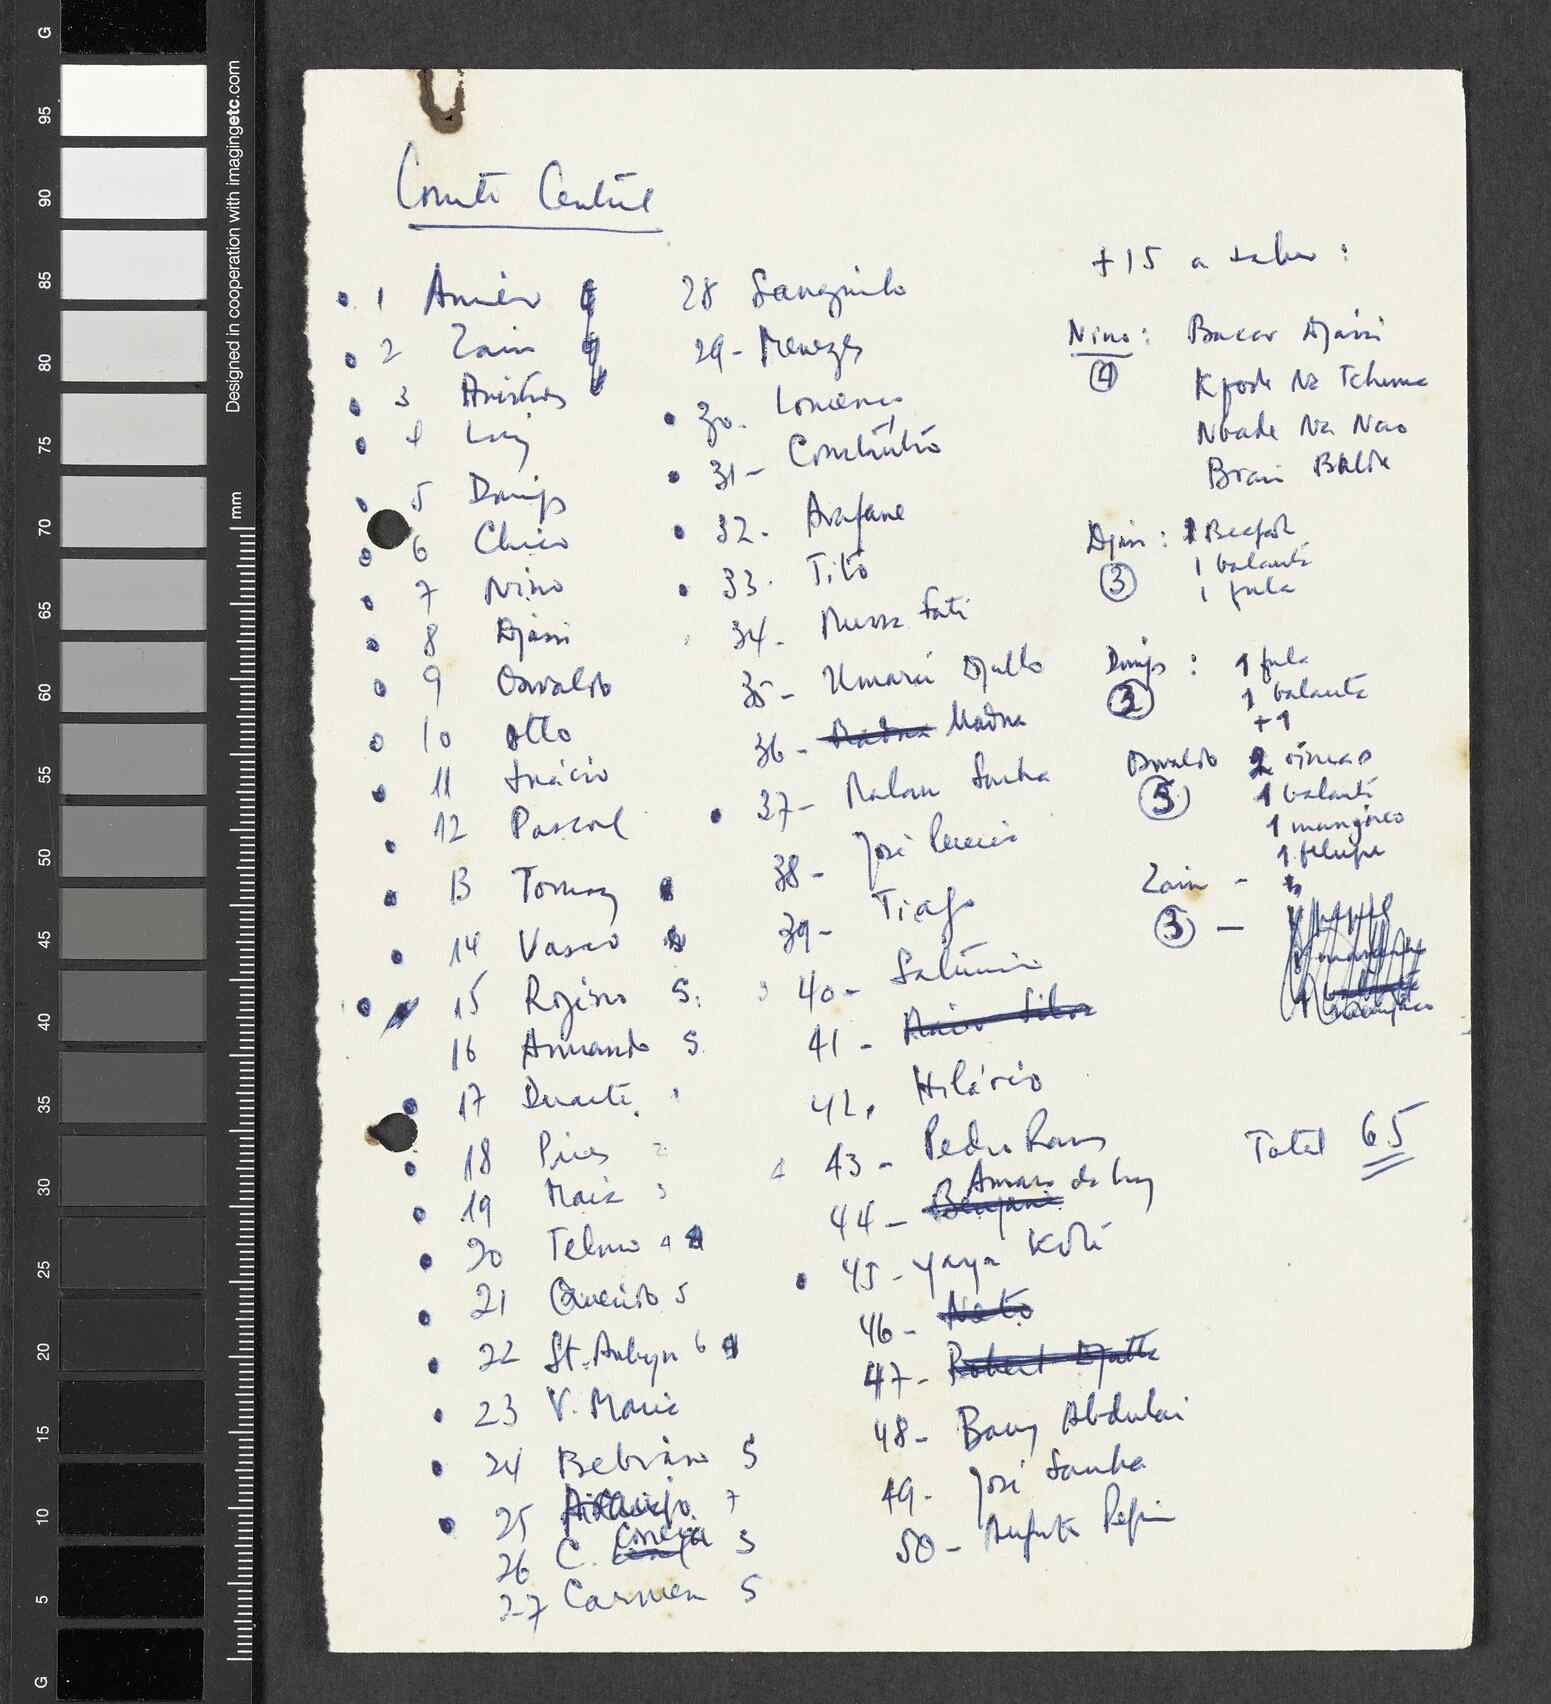 Comité Central
1 Amílcar
2 Zain
3 Aristides
4 Luiz
5 Domingos
6 Chico
7 Nino
8 Djassi
9 Osvaldo
10 Otto
11 Inácio
12 Pascoal
13 Tomaz
14 Vasco
15 Rogério 5
16 Armando 5
17 Duarte
18 Pires
19 Maria 3
20 Telmo 4
21 Querido 5
22 St. Aubyn 6
23 V. Maria
24 Bebiano 5
25 Araujo 7
26 C. Correia 3
27 Carmen 5
28 Sanguinho
29 - Menezes
30. Lourenço
31 - Constantino
32. Arafane
33. Tito
34 - Mussa Fati
35 - Umarú Djalló
36 - Madna
37 - Malam Sanha
38 - José Pereira
39 - Tiago
40 - Saturnino
41 - Maria Silva
42. Hilário
43 - Pedro Ramos
44 - Benjamin Amaro da Luz
45 - Yaya Koté
46 - Nato
47 - Robert Djatta
48 - Barry Abdulai
49 - José Sanha
50 - Augusto Pepin
+ 15 a saber :
Nino : Bacar Djassi
④ Kpode Na Tchuma
Nbade Na Nao
Brai Balde
Djassi : 1 Beafada
③ 1 balanta
1 fula
Domingos : 1 fula
1 balanta
+ 1
Osvaldo 2 oincas
⑤ 1 balanta
1 manjaco
1 felupe
Zain -
③ -
Total 65
Designed in cooperation with imagingetc.com
mm
G
95
90
85
80
75
70
65
60
55
50
45
40
35
30
25
20
15
10
5
G